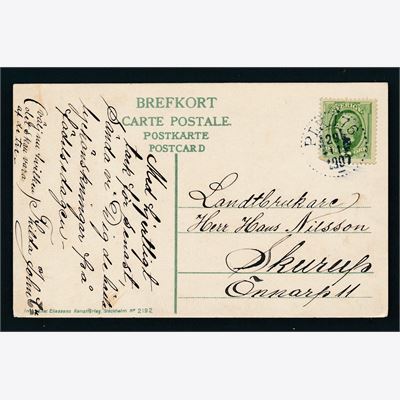 BREFKORT
CARTE POSTALE.
POSTKARTE
POSTCARD
SVERIGE
1907
Med hjertligt
tack för senast,
sända vi Dig de bästa
lyckönskningar på
födelsedagen
Hilda
Landtbrukare
Herr Hans Nilsson
Skurup
Önnarp 11
Eliassons Konstförlag, Stockholm Nº 2192